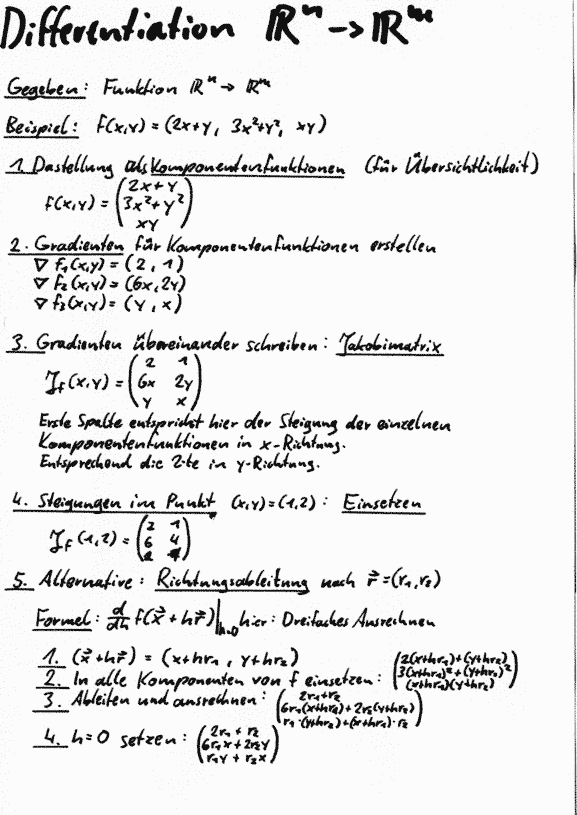 Differentiation ℝⁿ → ℝᵐ
Gegeben: Funktion ℝⁿ → ℝᵐ
Beispiel: f(x,y) = (2x+y, 3x²+y², xy)
1. Dastellung als Komponentenfunktionen (für Übersichtlichkeit)
f(x,y) = (2x+y
3x²+y²
xy)
2. Gradienten für Komponentenfunktionen erstellen
∇ f₁(x,y) = (2, 1)
∇ f₂(x,y) = (6x, 2y)
∇ f₃(x,y) = (y, x)
3. Gradienten übereinander schreiben: Jakobimatrix
J_f(x,y) = (2 1
6x 2y
y x)
Erste Spalte entspricht hier der Steigung der einzelnen
Komponentenfunktionen in x-Richtung.
Entsprechend die 2-te in y-Richtung.
4. Steigungen im Punkt (x,y)=(1,2): Einsetzen
J_f(1,2) = (2 1
6 4
2)
5. Alternative: Richtungsableitung nach r⃗=(r₁,r₂)
Formel: d/dh f(x⃗+hr⃗)|h=0 hier: Dreifaches Ausrechnen
1. (x⃗+hr⃗) = (x+hr₁, y+hr₂)
2. In alle Komponenten von f einsetzen: (2(x+hr₁)+(y+hr₂)
3(x+hr₁)²+(y+hr₂)²
(x+hr₁)(y+hr₂))
3. Ableiten und ausrechnen: (2r₁+r₂
6r₁(x+hr₁)+2r₂(y+hr₂)
r₁·(y+hr₂)+(x+hr₁)·r₂)
4. h=0 setzen: (2r₁+r₂
6r₁x+2r₂y
r₁y+r₂x)